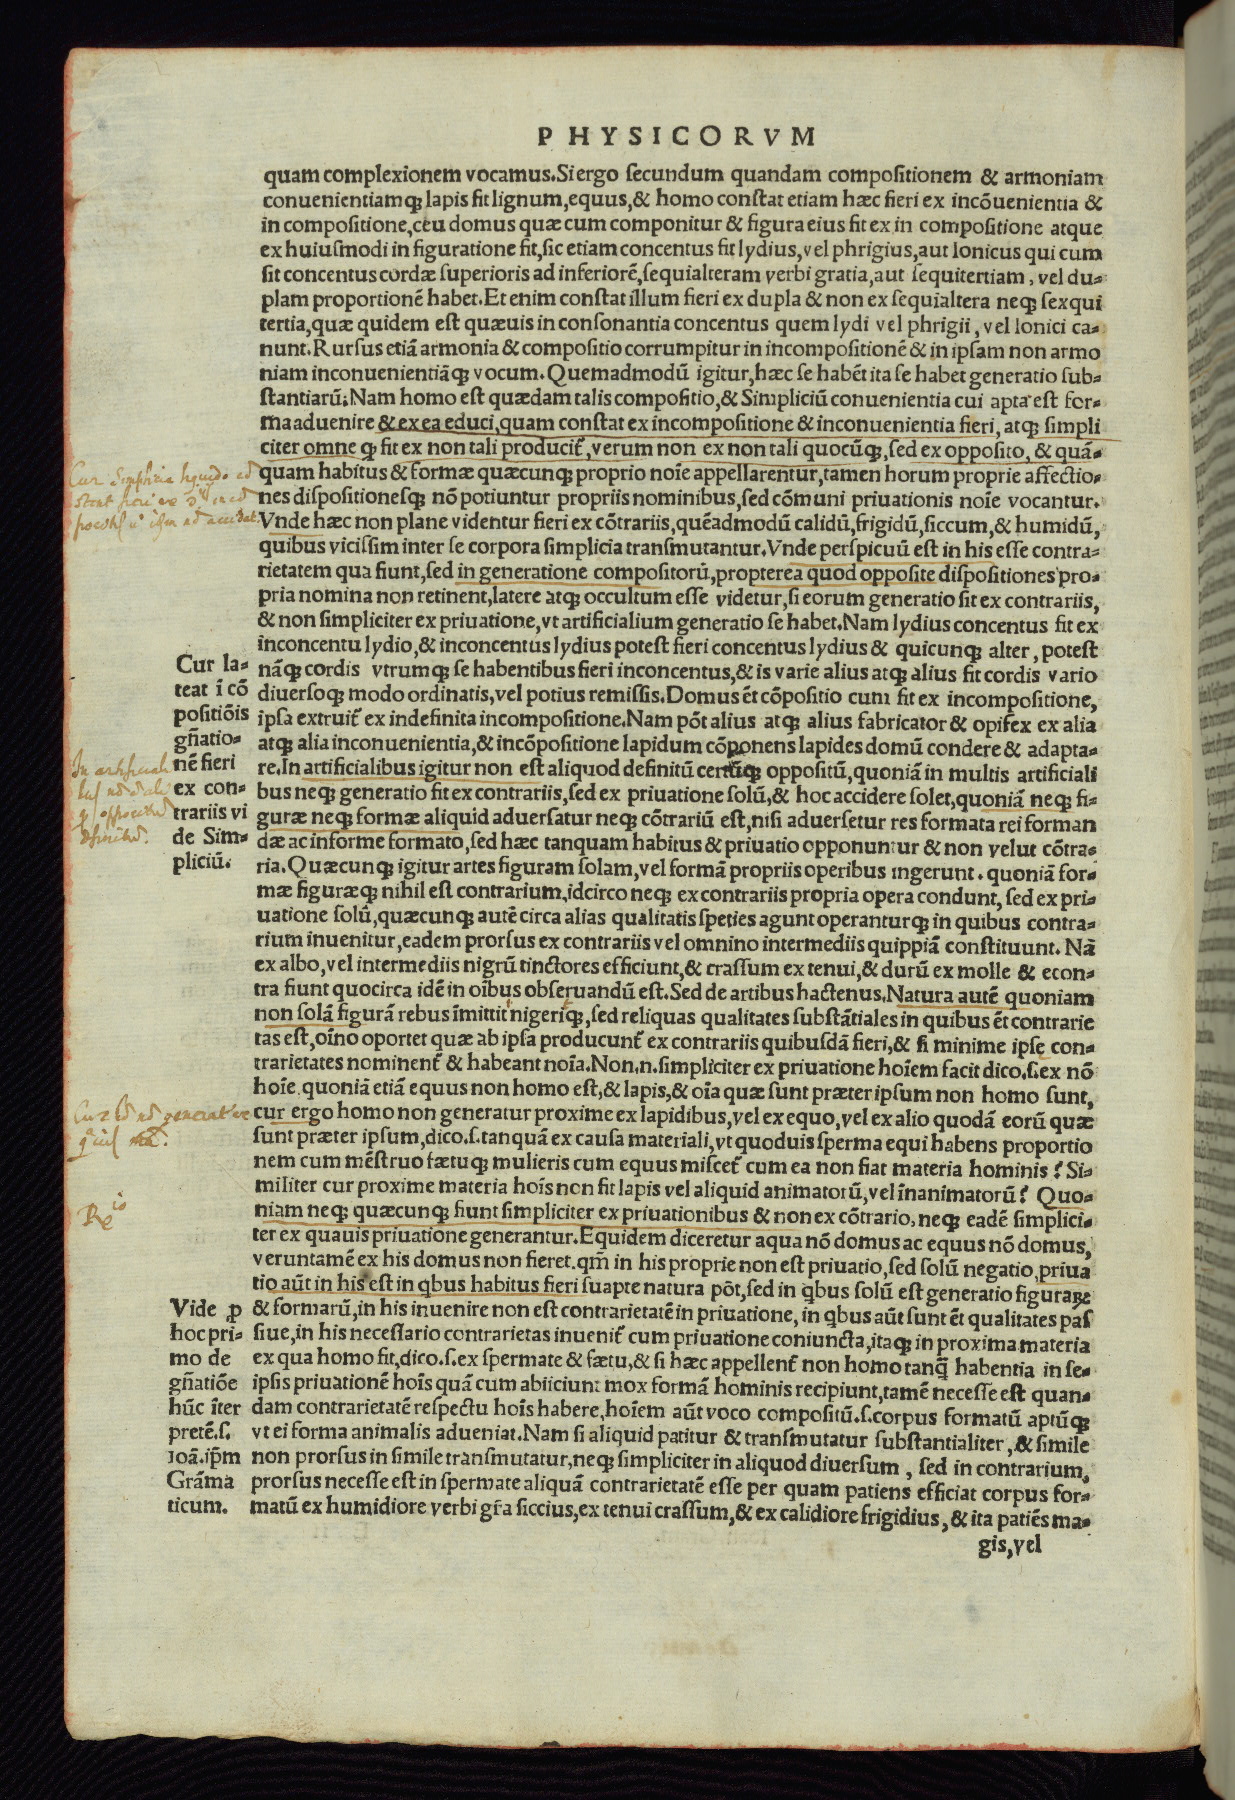 PHYSICORVM
quam complexionem vocamus.Si ergo ſecundum quandam compoſitionem & armoniam
conuenientiamqꝫ lapis fit lignum,equus,& homo conſtat etiam hæc fieri ex incōuenientia &
in compoſitione,ceu domus quæ cum componitur & figura eius fit ex in compoſitione atque
ex huiuſmodi in figuratione fit,ſic etiam concentus fit lydius,vel phrigius,aut Ionicus qui cum
fit concentus cordæ ſuperioris ad inferiorē,ſequialteram verbi gratia,aut ſequitertiam, vel du⸗
plam proportionē habet.Et enim conſtat illum fieri ex dupla & non ex ſequialtera neqꝫ ſexqui
tertia,quæ quidem eſt quæuis in conſonantia concentus quem lydi vel phrigii, vel Ionici ca⸗
nunt.Rurſus etiā armonia & compoſitio corrumpitur in incompoſitionē & in ipſam non armo
niam inconuenientiāqꝫ vocum.Quemadmodū igitur,hæc ſe habēt ita ſe habet generatio ſub⸗
ſtantiarū:Nam homo eſt quædam talis compoſitio,& Simpliciū conuenientia cui apta eſt for⸗
ma aduenire & ex ea educi,quam conſtat ex incompoſitione & inconuenientia fieri, atqꝫ ſimpli
citer omne qꝫ fit ex non tali producit̄,verum non ex non tali quocūqꝫ,ſed ex oppoſito, & quā⸗
quam habitus & formæ quæcunqꝫ proprio noīe appellarentur,tamen horum proprie affectio⸗
nes diſpoſitioneſqꝫ nō potiuntur propriis nominibus,ſed cōmuni priuationis noīe vocantur.
Vnde hæc non plane videntur fieri ex cōtrariis,quēadmodū calidū,frigidū,ſiccum,& humidū,
quibus viciſſim inter ſe corpora ſimplicia tranſmutantur.Vnde perſpicuū eſt in his eſſe contra⸗
rietatem qua fiunt,ſed in generatione compoſitorū,propterea quod oppoſite diſpoſitiones pro⸗
pria nomina non retinent,latere atqꝫ occultum eſſe videtur,ſi eorum generatio fit ex contrariis,
& non ſimpliciter ex priuatione,vt artificialium generatio ſe habet.Nam lydius concentus fit ex
inconcentu lydio,& inconcentus lydius poteſt fieri concentus lydius & quicunqꝫ alter, poteſt
nāqꝫ cordis vtrumqꝫ ſe habentibus fieri inconcentus,& is varie alius atqꝫ alius fit cordis vario
diuerſoqꝫ modo ordinatis,vel potius remiſſis.Domus ēt cōpoſitio cum fit ex incompoſitione,
ipſa extruit̄ ex indefinita incompoſitione.Nam pōt alius atqꝫ alius fabricator & opifex ex alia
atqꝫ alia inconuenientia,& incōpoſitione lapidum cōponens lapides domū condere & adapta⸗
re.In artificialibus igitur non eſt aliquod definitū certūqꝫ oppoſitū,quoniā in multis artificiali
bus neqꝫ generatio fit ex contrariis,ſed ex priuatione ſolū,& hoc accidere ſolet,quoniā neqꝫ fi⸗
guræ neqꝫ formæ aliquid aduerſatur neqꝫ cōtrariū eſt,niſi aduerſetur res formata rei forman
dæ ac informe formato,ſed hæc tanquam habitus & priuatio opponuntur & non velut cōtra⸗
ria.Quæcunqꝫ igitur artes figuram ſolam,vel formā propriis operibus ingerunt . quoniā for⸗
mæ figuræqꝫ nihil eſt contrarium,idcirco neqꝫ ex contrariis propria opera condunt, ſed ex pri⸗
uatione ſolū,quæcunqꝫ autē circa alias qualitatis ſpeties agunt operanturqꝫ in quibus contra⸗
rium inuenitur,eadem prorſus ex contrariis vel omnino intermediis quippiā conſtituunt. Nā
ex albo,vel intermediis nigrū tinctores efficiunt,& craſſum ex tenui,& durū ex molle & econ⸗
tra fiunt quocirca idē in oībus obſeruandū eſt.Sed de artibus hactenus.Natura autē quoniam
non ſolā figurā rebus īmittit nigeriqꝫ,ſed reliquas qualitates ſubſtātiales in quibus ēt contrarie
tas eſt,oīno oportet quæ ab ipſa producunt̄ ex contrariis quibuſdā fieri,& ſi minime ipſe con⸗
trarietates nominent̄ & habeant noīa.Non.n.ſimpliciter ex priuatione hoīem facit dico.ſ.ex nō
hoīe.quoniā etiā equus non homo eſt,& lapis,& oīa quæ ſunt præter ipſum non homo ſunt,
cur ergo homo non generatur proxime ex lapidibus,vel ex equo,vel ex alio quodā eorū quæ
ſunt præter ipſum,dico.ſ.tanquā ex cauſa materiali,vt quoduis ſperma equi habens proportio
nem cum mēſtruo fætuqꝫ mulieris cum equus miſcet̄ cum ea non fiat materia hominis ? Si⸗
militer cur proxime materia hoīs non fit lapis vel aliquid animatorū,vel īnanimatorū? Quo⸗
niam neqꝫ quæcunqꝫ fiunt ſimpliciter ex priuationibus & non ex cōtrario, neqꝫ eadē ſimplici⸗
ter ex quauis priuatione generantur.Equidem diceretur aqua nō domus ac equus nō domus,
veruntamē ex his domus non fieret.qm̄ in his proprie non eſt priuatio,ſed ſolū negatio,priua
tio aūt in his eſt in qbus habitus fieri ſuapte natura pōt,ſed in qbus ſolū eſt generatio figuraꝝ
& formarū,in his inuenire non eſt contrarietatē in priuatione, in qbus aūt ſunt ēt qualitates paſ
ſiue,in his neceſſario contrarietas inuenit̄ cum priuatione coniuncta,itaqꝫ in proxima materia
ex qua homo fit,dico.ſ.ex ſpermate & fætu,& ſi hæc appellent̄ non homo tanq̄ habentia in ſe⸗
ipſis priuationē hoīs quā cum abiiciunt mox formā hominis recipiunt,tamē neceſſe eſt quan⸗
dam contrarietatē reſpectu hoīs habere,hoīem aūt voco compoſitū.ſ.corpus formatū aptūqꝫ
vt ei forma animalis adueniat.Nam ſi aliquid patitur & tranſmutatur ſubſtantialiter, & ſimile
non prorſus in ſimile tranſmutatur,neqꝫ ſimpliciter in aliquod diuerſum , ſed in contrarium,
prorſus neceſſe eſt in ſpermate aliquā contrarietatē eſſe per quam patiens efficiat corpus for⸗
matū ex humidiore verbi gr̄a ſiccius,ex tenui craſſum,& ex calidiore frigidius, & ita patiēs ma⸗
gis,vel
Cur la⸗
teat ī cō
poſitiōis
gn̄atio⸗
nē fieri
ex con⸗
trariis vi
de Sim⸗
pliciū.
Vide ꝓ
hoc pri⸗
mo de
gn̄atiōe
hūc īter
pretē.ſ.
Ioā.ip̄m
Grāma
ticum.